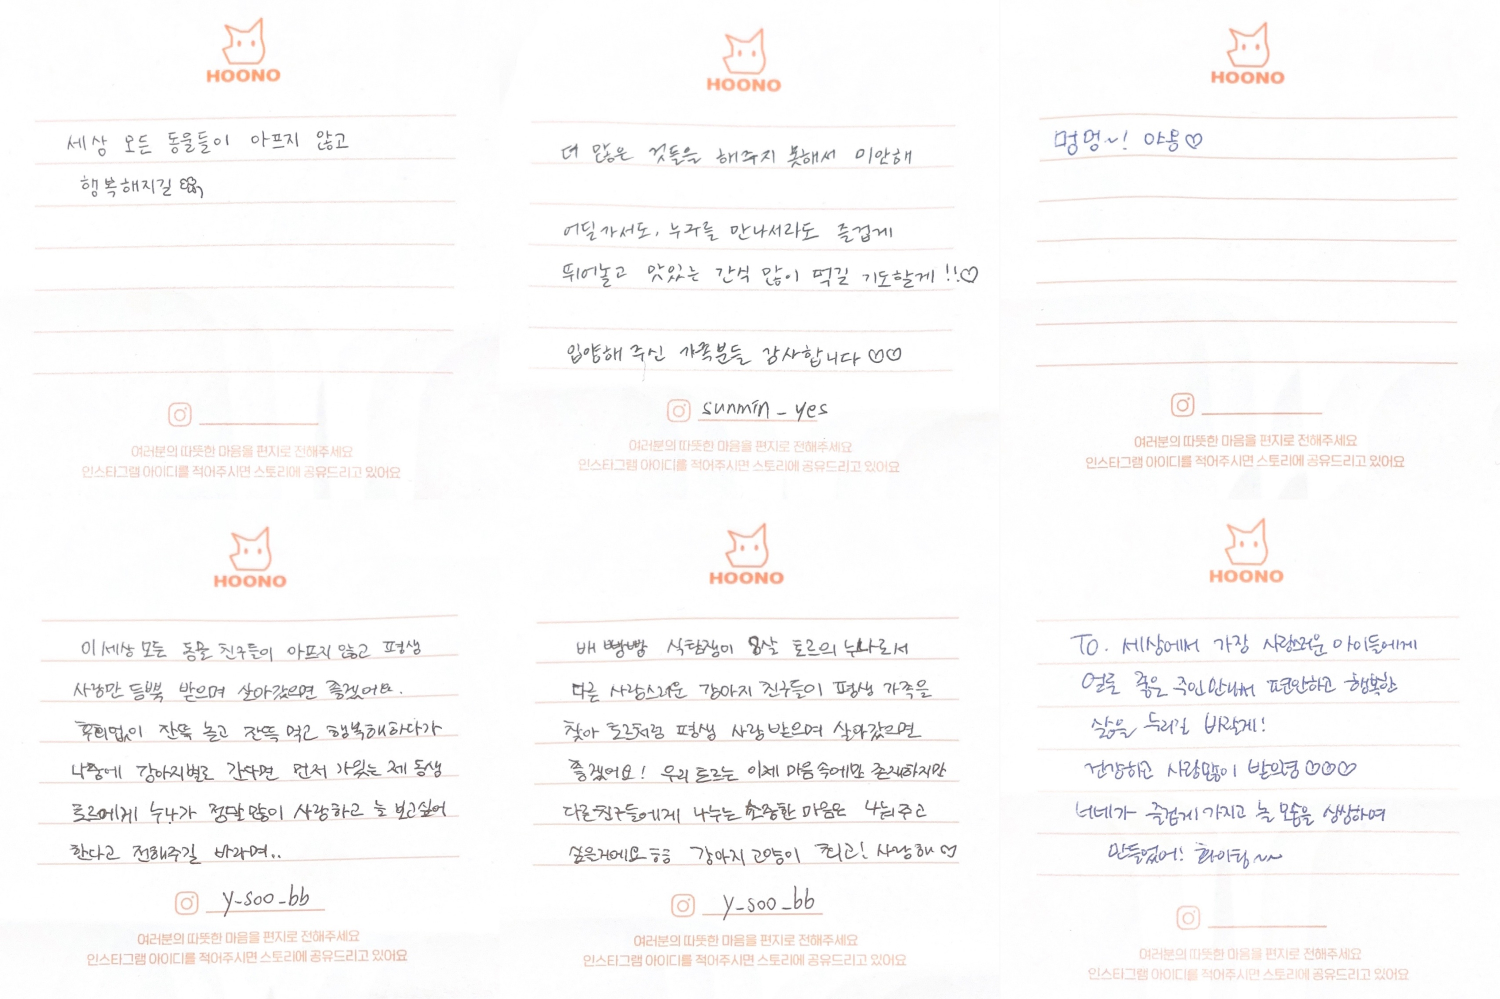 HOONO
세상 모든 동물들이 아프지 않고
행복해지길
여러분의 따뜻한 마음을 편지로 전해주세요
인스타그램 아이디를 적어주시면 스토리에 공유드리고 있어요
HOONO
더 많은 것들을 해주지 못해서 미안해
어딜가서도, 누구를 만나서라도 즐겁게
뛰어놀고 맛있는 간식 많이 먹길 기도할게!!♡
입양해 주신 가족분들 감사합니다 ♡♡
sunmin_yes
여러분의 따뜻한 마음을 편지로 전해주세요
인스타그램 아이디를 적어주시면 스토리에 공유드리고 있어요
HOONO
멍멍~! 야옹♡
여러분의 따뜻한 마음을 편지로 전해주세요
인스타그램 아이디를 적어주시면 스토리에 공유드리고 있어요
HOONO
이 세상 모든 동물 친구들이 아프지 않고 평생
사랑만 듬뿍 받으며 살아갔으면 좋겠어요.
후회없이 잔뜩 놀고 잔뜩 먹고 행복해하다가
나중에 강아지별로 간다면 먼저 가있는 제 동생
토르에게 누나가 정말 많이 사랑하고 늘 보고싶어
한다고 전해주길 바라며..
y_soo_bb
여러분의 따뜻한 마음을 편지로 전해주세요
인스타그램 아이디를 적어주시면 스토리에 공유드리고 있어요
HOONO
배 빵빵 식탐쟁이 8살 토르의 누나로서
다른 사랑스러운 강아지 친구들이 평생 가족을
찾아 토르처럼 평생 사랑 받으며 살아갔으면
좋겠어요! 우리 토르는 이제 마음 속에만 존재하지만
다른 친구들에게 나누는 소중한 마음은 나눠주고
싶은거에요 ㅎㅎ 강아지 고양이 최고! 사랑해♡
y_soo_bb
여러분의 따뜻한 마음을 편지로 전해주세요
인스타그램 아이디를 적어주시면 스토리에 공유드리고 있어요
HOONO
To. 세상에서 가장 사랑스러운 아이들에게
얼른 좋은 주인만나서 편안하고 행복한
삶을 누리길 바랄게!
건강하고 사랑많이 받으렴♡♡♡
너네가 즐겁게 가지고 놀 모습을 상상하며
만들었어! 화이팅~~
여러분의 따뜻한 마음을 편지로 전해주세요
인스타그램 아이디를 적어주시면 스토리에 공유드리고 있어요